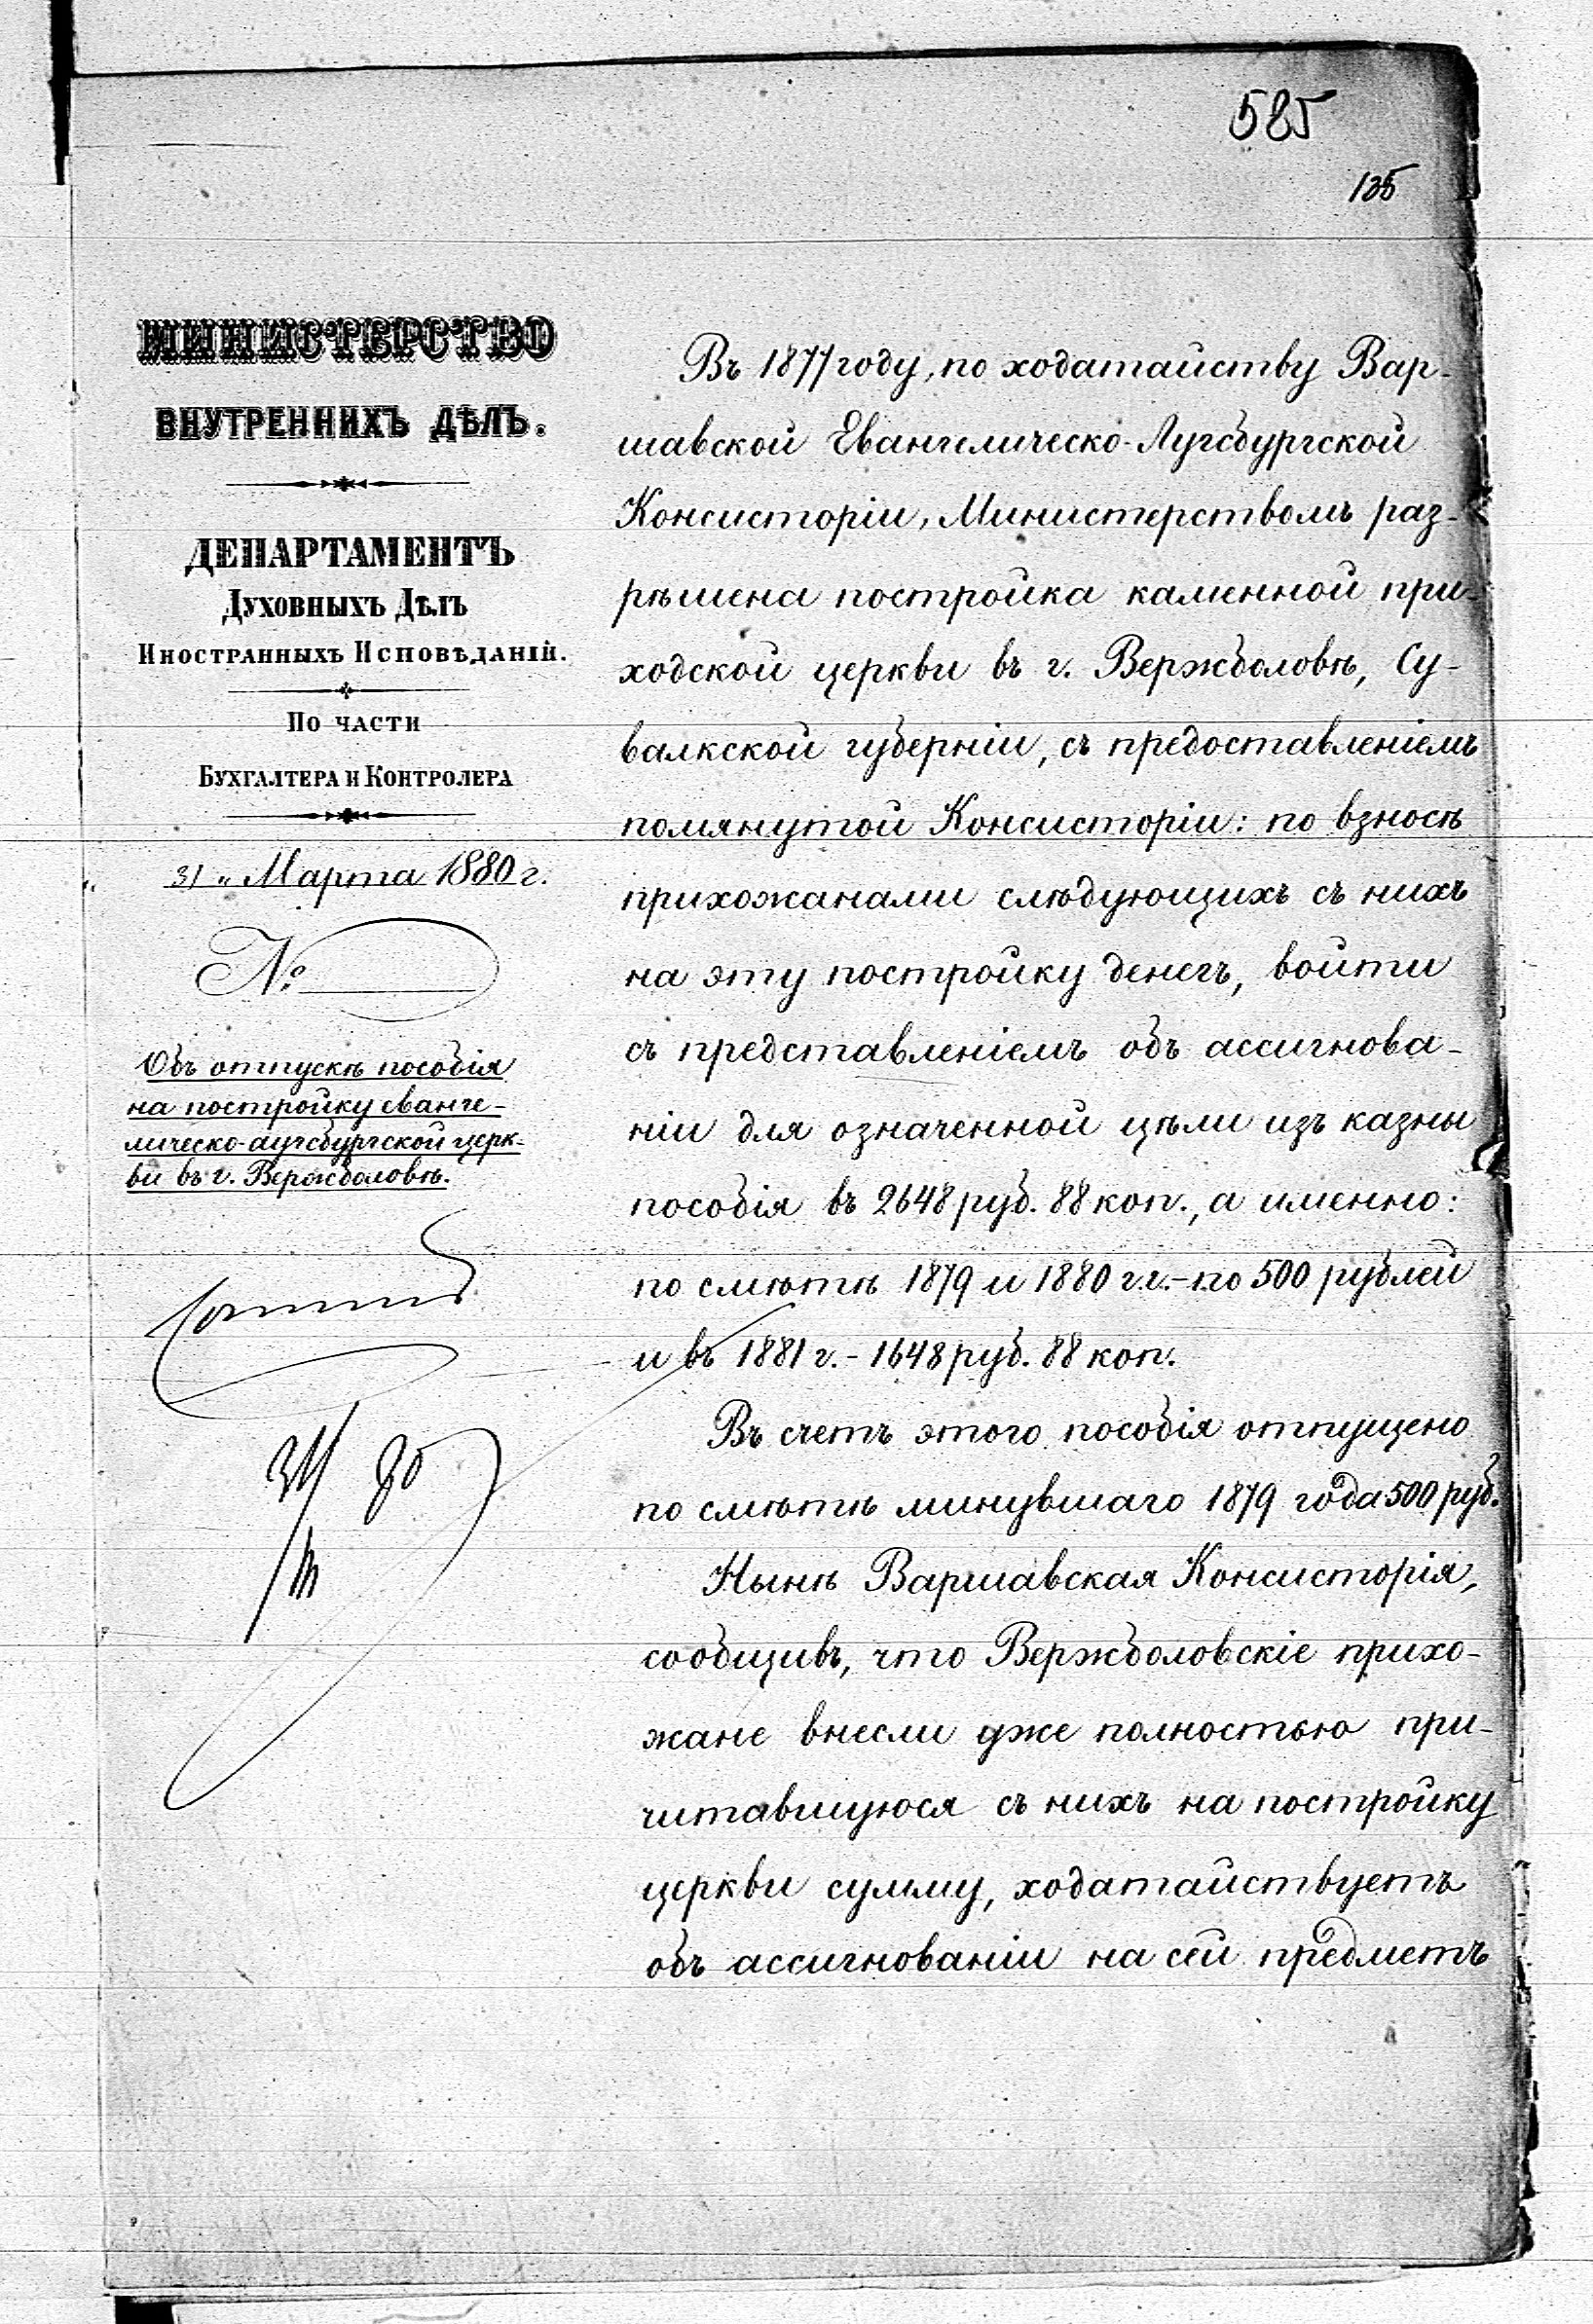 585
135
МИНИСТЕРСТВО
ВНУТРЕННИХЪ ДѢЛЪ.
ДЕПАРТАМЕНТЪ
Духовныхъ Дѣлъ
Иностранныхъ Исповѣданій.
По части
Бухгалтера и Контролера
„ 31 „ Марта 1880 г.
№
Объ отпускѣ пособія
на постройку еванге-
лическо-аугсбургской церк-
ви въ г. Вержболовѣ.
31/III 80
Въ 1877 году, по ходатайству Вар-
шавской Евангелическо-Аугсбургской
Консисторіи, Министерствомъ раз-
рѣшена постройка каменной при-
ходской церкви въ г. Вержболовѣ, Су-
валкской губерніи, съ предоставленіемъ
помянутой Консисторіи: по взносѣ
прихожанами слѣдующихъ съ нихъ
на эту постройку денегъ, войти
съ представленіемъ объ ассигнова-
ніи для означенной цѣли изъ казны
пособія въ 2648 руб. 88 коп., а именно:
по смѣтѣ 1879 и 1880 г.г. – по 500 рублей
и въ 1881 г. – 1648 руб. 88 коп.
Въ счетъ этого пособія отпущено
по смѣтѣ минувшаго 1879 года 500 руб.
Нынѣ Варшавская Консисторія,
сообщивъ, что Вержболовскіе прихо-
жане внесли уже полностью при-
читавшуюся съ нихъ на постройку
церкви сумму, ходатайствуетъ
объ ассигнованіи на сей предметъ